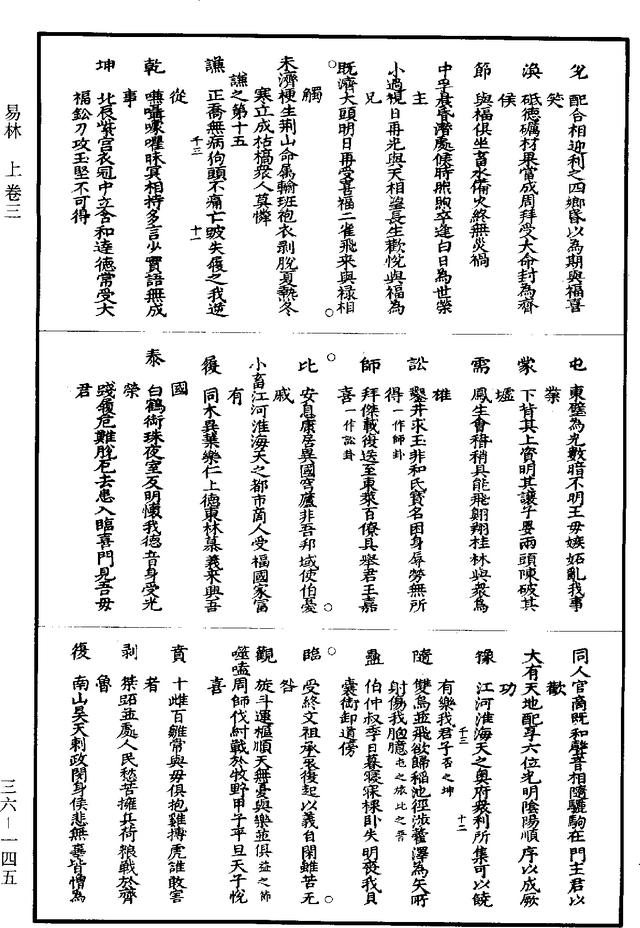 兌　配合相迎利之四鄉昏以為期與福喜
笑
渙　砥德礪材果當成周拜受大命封為齊
侯
節　與福俱坐畜水備火終無災禍
中孚晨昏潛處候時煦煦卒逢白日為世榮
主
小過視日再光與天相望長生歡悅與福為
兄
既濟大頭明日再受喜福二雀飛來與祿相
觸
未濟梗生荊山命屬輸班袍衣剥脫夏熱冬
寒立成枯槁衆人莫憐
謙之第十五
謙　正喬無病狗頭不痛亡跛失履之我逆
從
乾　嚥囁嚄嚾昧冥相持多言少實語無成
事
坤　北辰紫宮衣冠中立含和達德常受大
福鈆刀攻玉堅不可得
屯　東壁為光數暗不明王毋嫉妬亂我事
業
蒙　下背其上實明其讓子嬰兩頭陳破其
墟
需　鳳生會稽稍具能飛翺翔桂林與衆鳥
雄
訟　鑿井求玉非和氏寶名困身辱勞無所
得一作師卦
師　拜傑載復送至東萊百僚具舉君王嘉
喜一作訟卦
比　安息康居異國穹廬非吾邦域使伯憂
戚
小畜江河淮海天之都市商人受福國家富
有
履　同木異葉樂仁上德東林慕義來興吾
國
泰　白鶴銜珠夜室反明懷我德音身受光
榮
踐履危難脫厄去患入臨喜門見吾毋
君
同人官商既和聲音相隨驪駒在門主君以
歡
大有天地配享六位光明陰陽順序以成厥
功
豫　江河淮海天之奧府衆利所集可以饒
有樂我君子否之坤
隨　雙鳥並飛欲歸稻池徑涉萑澤為矢所
射傷我胸臆屯之旅比之晉
蠱　伯仲叔季日暮寢寐倮卧失明發我貝
囊衒卸道傍
臨　受終文祖承衰後起以義自閑雖苦无
咎
觀　旋斗運樞順天無憂與樂並俱益之師
噬嗑周師伐紂戰於牧野甲子平旦天子悅
喜
賁　十雌百雛常與毋俱抱雞搏虎誰敢害
者
剥　桀跖並處人民愁苦擁兵荷粮戰於齊
魯
復　南山昊天刺政閔身侯悲無辜皆憎為
易林　上卷三
三六－一四五